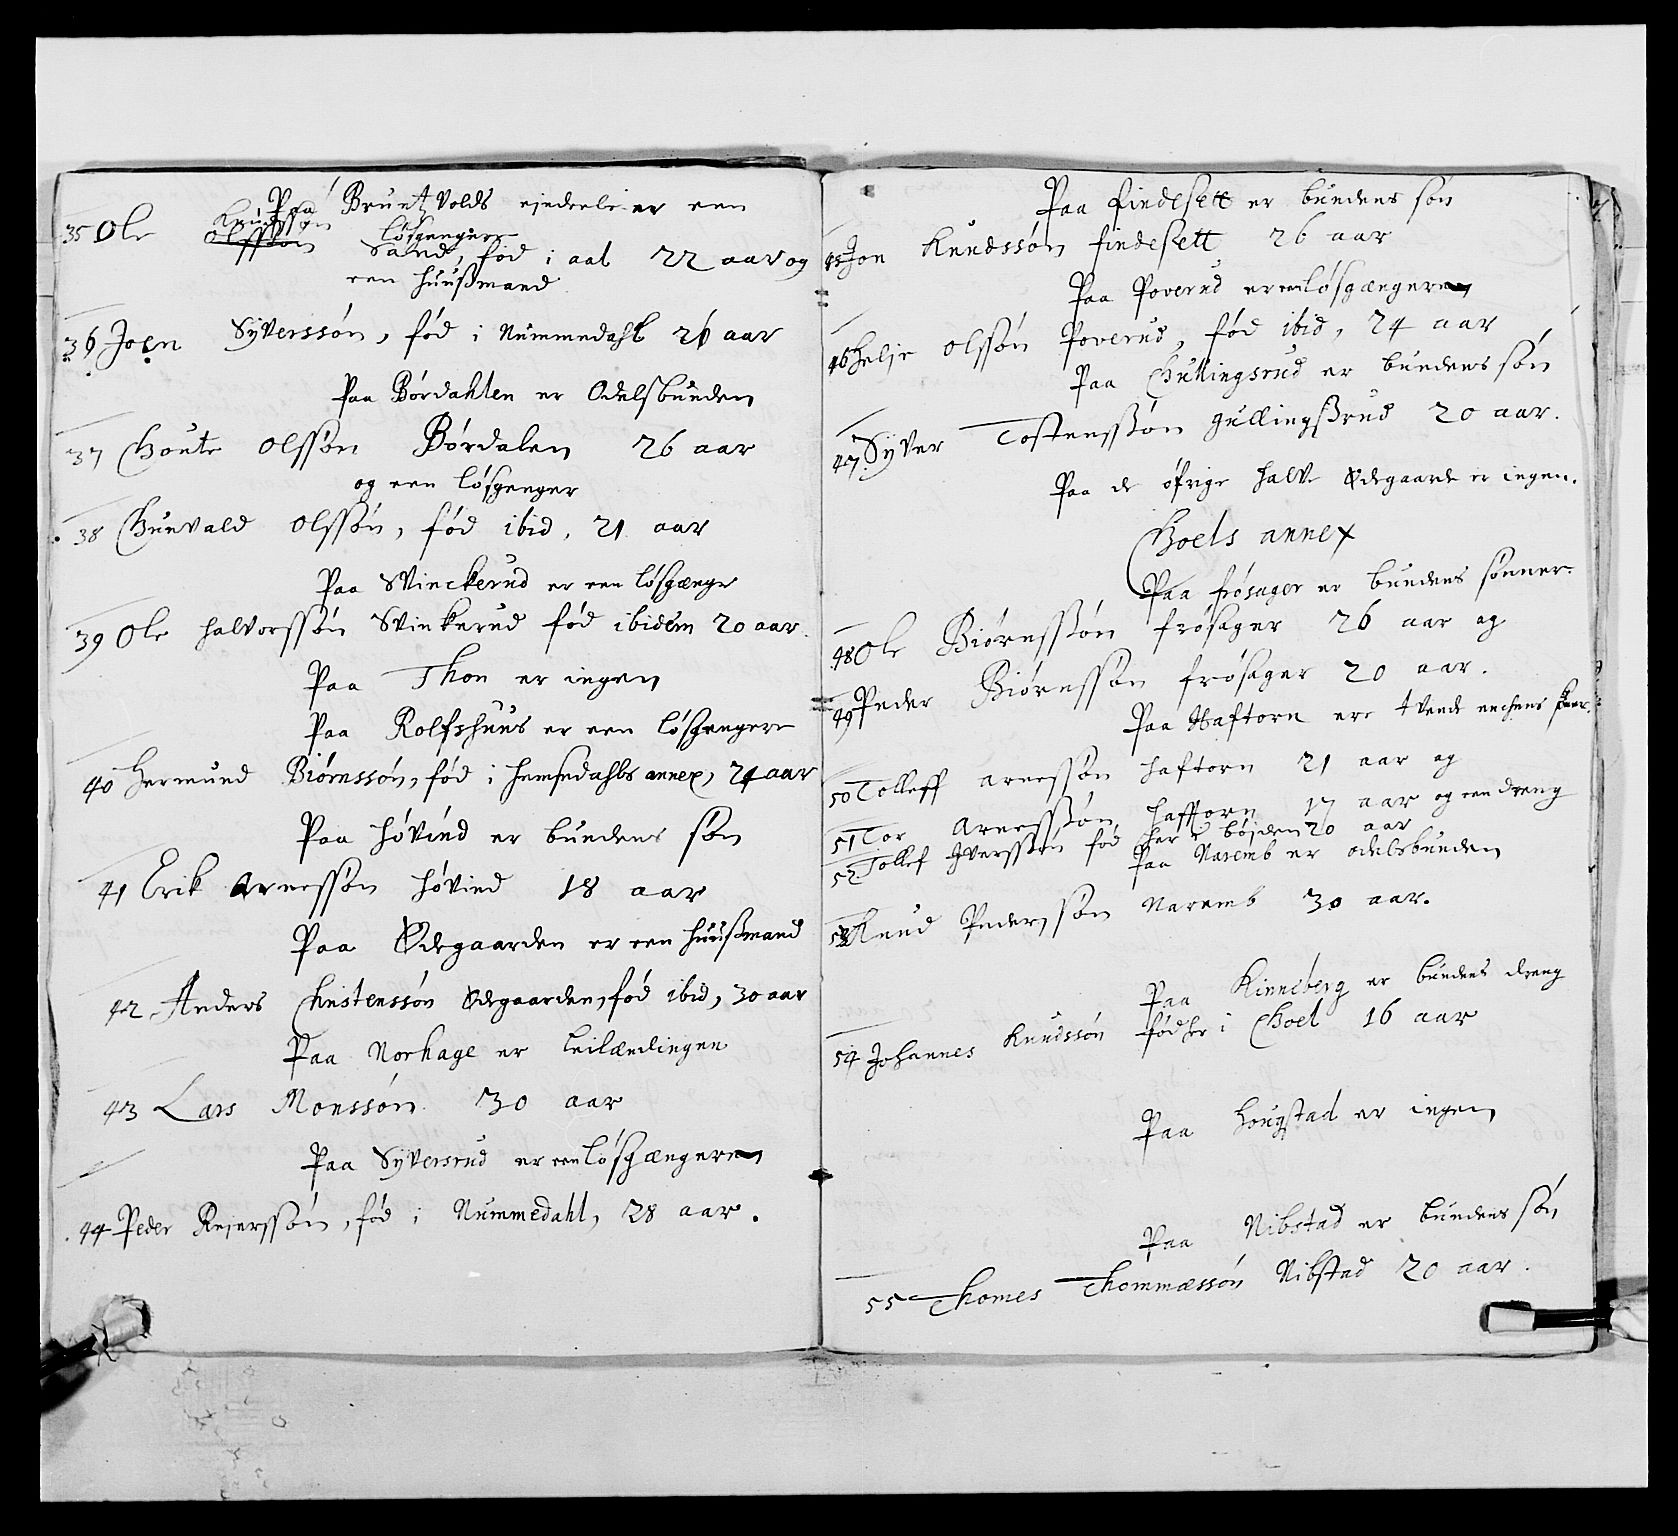 Paa Bruntvolds ejedeele er een
35 Ole Knudssøn løsgenger
Olssøn Sand, fød i aal 22 aar og
een huusmand
36 Joen Syverssøn, fød i Nummedahl 26 aar
Paa Børdahlen er Odelsbunden
37 Goute Olssøn Børdalen 26 aar
og een løsgenger
38 Gunvald Olssøn, fød ibid, 21 aar
Paa Svinckerud er een løsgænge
39 Ole Halvorssøn Svinkerud fød ibidem 20 aar.
Paa Thon er ingen
Paa Rolfshuus er een løsgengere
40 Hermund Biørnssøn, fød i Hemsedahls annex, 24 aar
Paa Høvind er bundens søn
41 Erik Arnessøn Høvind 18 aar
Paa Ødegaarden er een huusmand
42 Anders Christenssøn Ødegaarden, fød ibid, 30 aar
Paa Norhage er leilændingen
43 Lars Monssøn 30 aar
Paa Syversrud er een løsgængere
44 Peder Rejerssøn, fød i Nummedahl, 28 aar.
Paa Findesett er bundens søn
45 Jon Knudssøn Findesett 26 aar
Paa Poverud er een løsgængere
46 Helje Olssøn Poverud, fød ibid, 24 aar
Paa Gullingsrud er bundens søn
47 Syver Tostenssøn Gullingsrud 20 aar.
Paa de øfrige halve Ødegaarde er ingen.
Goels annex
Paa Frøsager er bundens sønner.
48 Ole Biørnssøn Frøsager 26 aar og
49 Peder Biørnssøn Frøsager 20 aar.
Paa Haftorn ere tvende enchens
50 Tolleff Arnessøn Haftorn 21 aar og
51 Tor Arnessøn Hafftorn 17 aar og een dreng
52 Tollef Iverssøn fød her i bøjden 20 aar
Paa Naremb er odelsbunden
53 Knud Pederssøn Naremb 30 aar.
Paa Kinneberg er bundens dreng
54 Johannes Knudssøn fød her i Goel 16 aar
Paa Hougstad er ingen
Paa Nibstad er bundens søn
55 Thomes Thommæssøn Nibstad 20 aar.